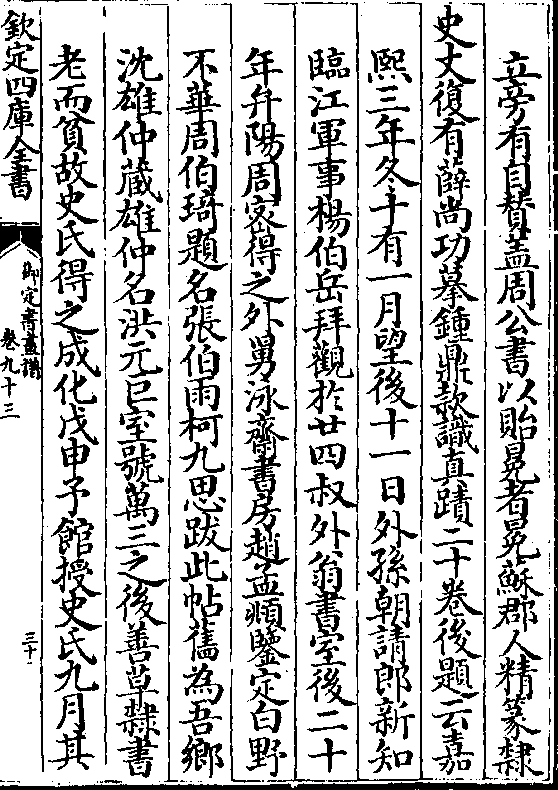 立旁有自賛盖周公書以貽晃者晃蘇郡人精篆隸
史丈復有薛尚功摹鍾鼎欵識真蹟二十卷後題云嘉
熙三年冬十有一月望後十一日外孫朝請郎新知
臨江軍事楊伯岳拜觀於廿四叔外翁書室後二十
年弁陽周宻得之外舅泳齋書房趙孟頫鑒定白野
不華周伯琦題名張伯雨柯九思跋此帖舊為吾鄉
沈雄仲蔵雄仲名洪元巨室號萬三之後善草隸書
老而貧故史氏得之成化戊申予館授史氏九月其
欽定四庫全書
御定書畫譜
卷九十三
三十